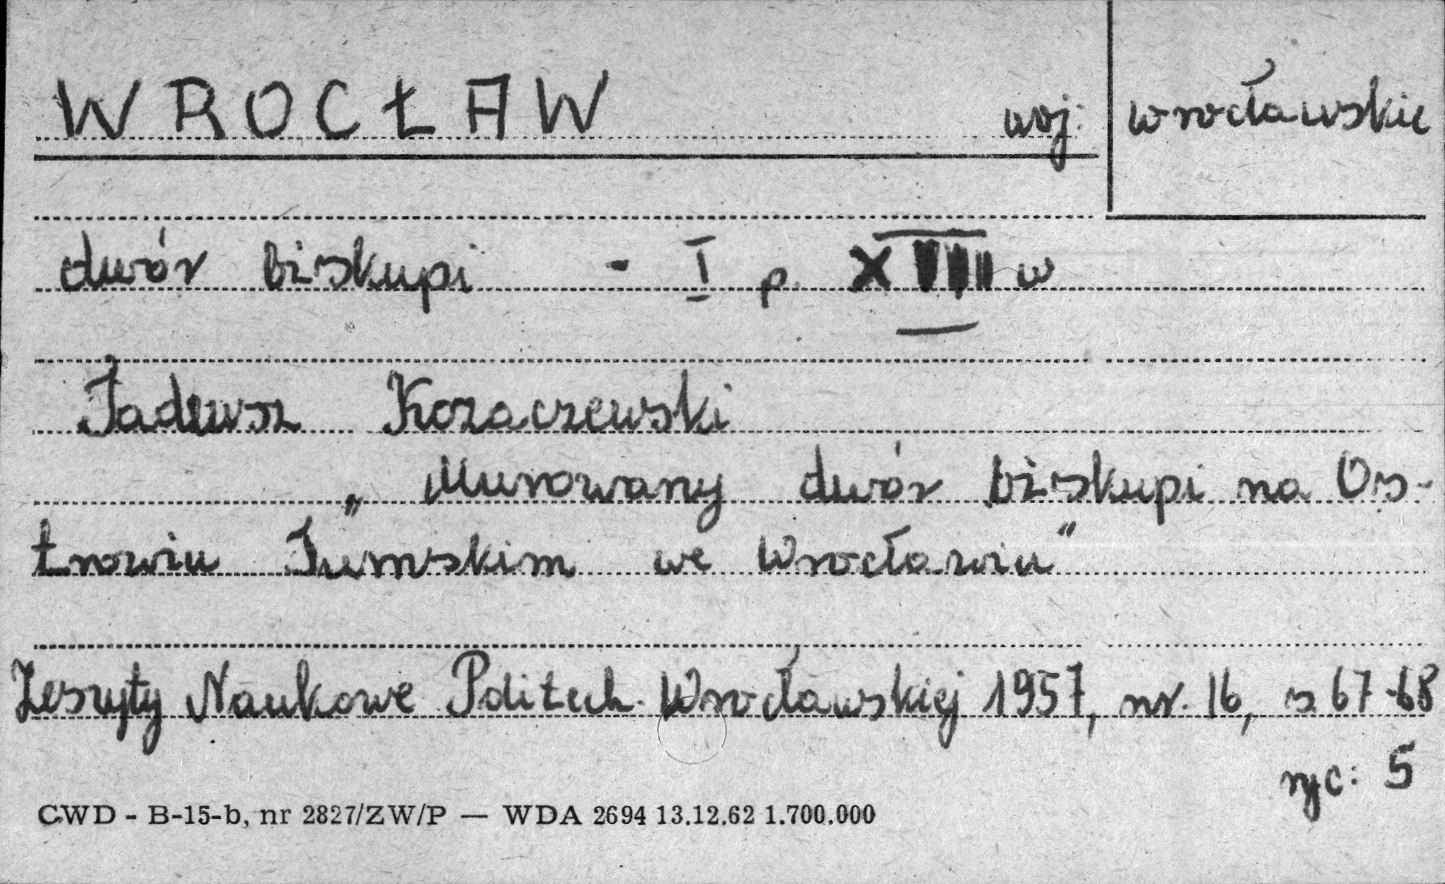 WROCŁAW woj: wrocławskie
dwór biskupi - I p. XIII w
Tadeusz Kozaczewski
„Murowany dwór biskupi na Os-
trowiu Tumskim we Wrocławiu"
Zeszyty Naukowe Politech. Wrocławskiej 1957, nr. 16, s 67-68
ryc: 5
CWD - B-15-b, nr 2827/ZW/P — WDA 2694 13.12.62 1.700.000